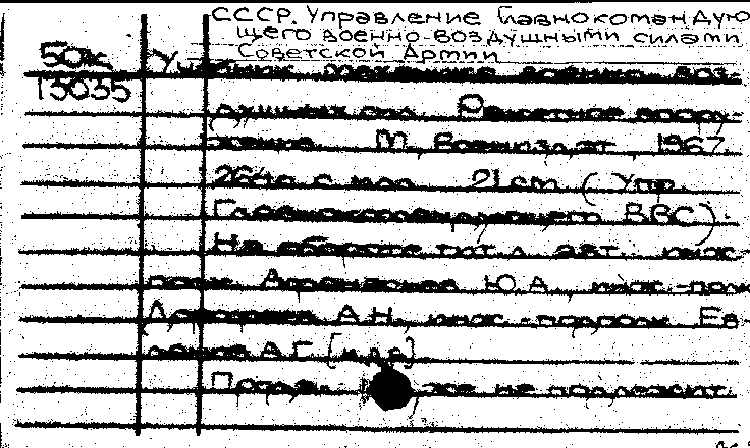 СССР. Управление Главнокомандую-
щего военно-воздушными силами
Советской Армии
50к
15035
Учебник механика военно-воз-
душных сил. Ракетное воору-
жение. М, Воениздат, 1967.
264с с илл. 21 см (Упр.
Главнокомандующего ВВС).
На обороте тит. л. авт.: инж.-
Ю.А., инж.-полк
А.Н., инж.-подполк. Ев-
А.Г. [и др].
Продаже не подлежит.